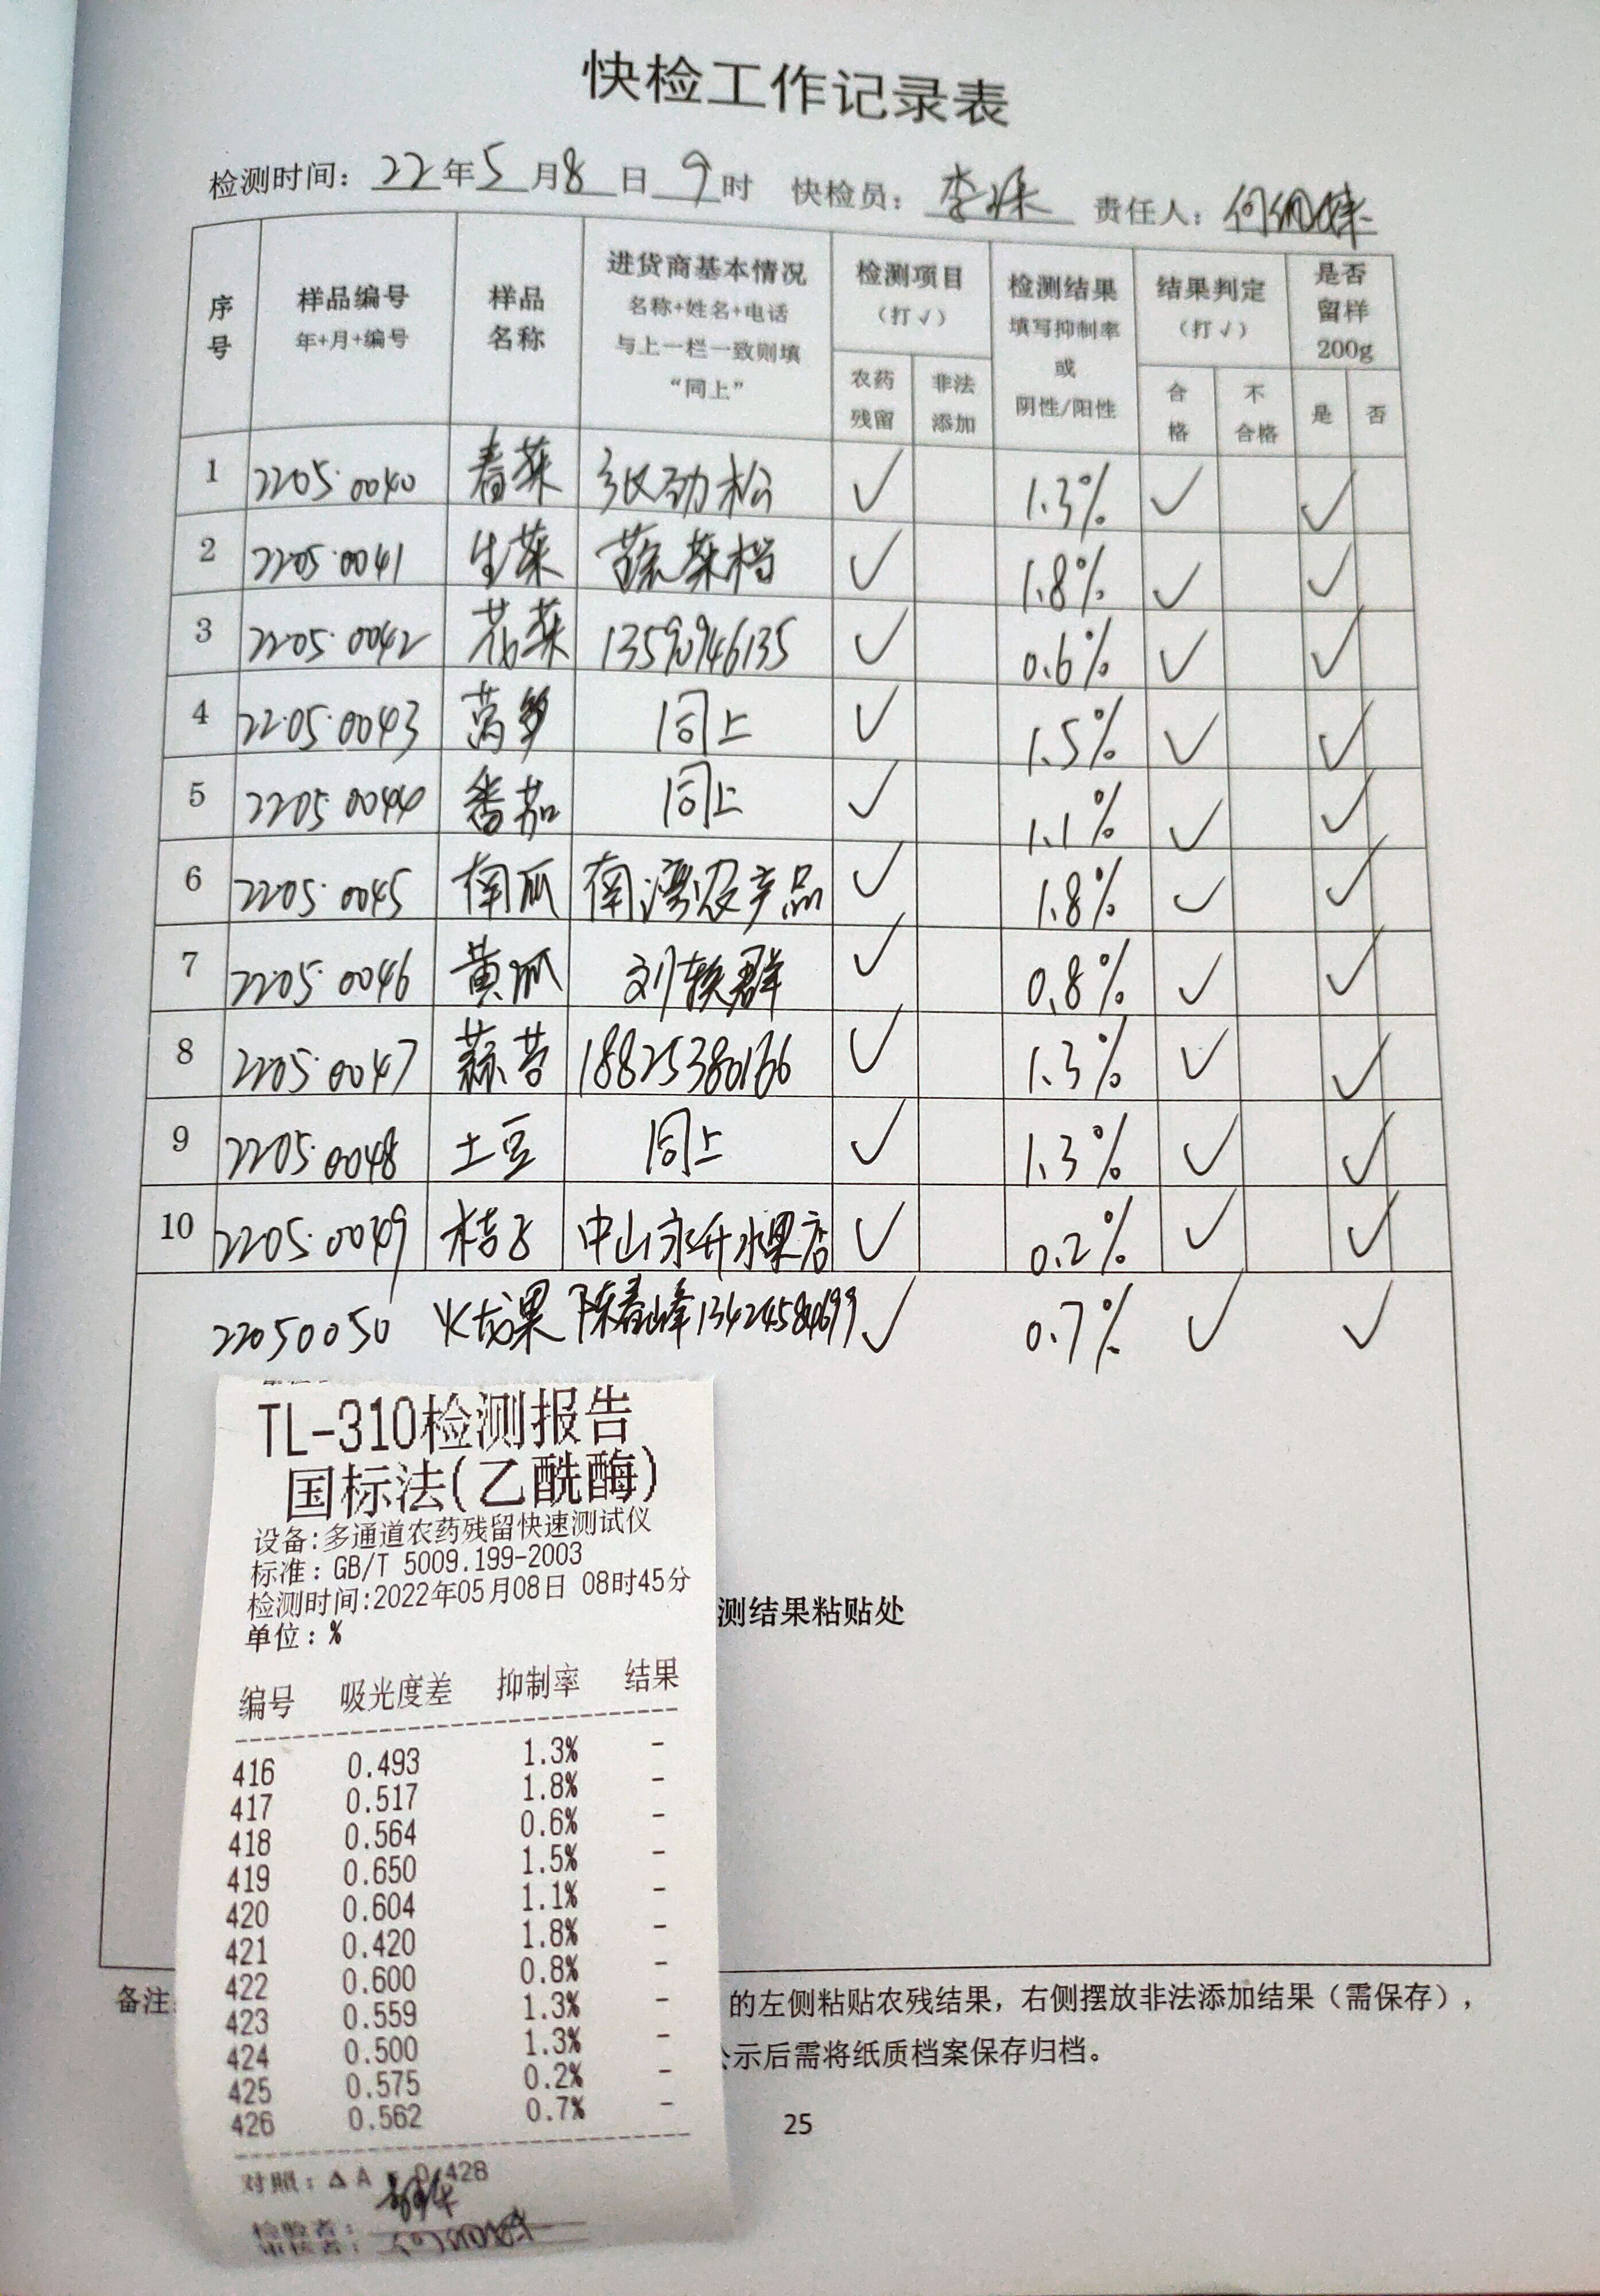 快检工作记录表
检测时间：22年5月8日9时 快检员：李 责任人：何
序号 样品编号 年+月+编号 样品名称 进货商基本情况 名称+姓名+电话 与上一栏一致则填“同上” 检测项目（打√） 农药残留 非法添加 检测结果 填写抑制率或阴性/阳性 结果判定（打√） 合格 不合格 是否留样200g 是 否
1 2205.0040 春菜 张劲松 √ 1.3% √ √
2 2205.0041 生菜 蔬菜档 √ 1.8% √ √
3 2205.0042 花菜 13590946135 √ 0.6% √ √
4 2205.0043 莴笋 同上 √ 1.5% √ √
5 2205.0044 番茄 同上 √ 1.1% √ √
6 2205.0045 南瓜 南湾农产品 √ 1.8% √ √
7 2205.0046 黄瓜 刘群 √ 0.8% √ √
8 2205.0047 蒜苔 √ 1.3% √ √
9 2205.0048 土豆 同上 √ 1.3% √ √
10 2205.0049 桔子 中山永升水果店 √ 0.2% √ √
22050050 火龙果 陈春峰 √ 0.7% √ √
TL-310检测报告
国标法(乙酰酶)
设备:多通道农药残留快速测试仪
标准：GB/T 5009.199-2003
检测时间:2022年05月08日 08时45分
单位：%
测结果粘贴处
编号 吸光度差 抑制率 结果
416 0.493 1.3% -
417 0.517 1.8% -
418 0.564 0.6% -
419 0.650 1.5% -
420 0.604 1.1% -
421 0.420 1.8% -
422 0.600 0.8% -
423 0.559 1.3% -
424 0.500 1.3% -
425 0.575 0.2% -
426 0.562 0.7% -
对照：ΔA 0.428
备注：的左侧粘贴农残结果，右侧摆放非法添加结果（需保存），
示后需将纸质档案保存归档。
25